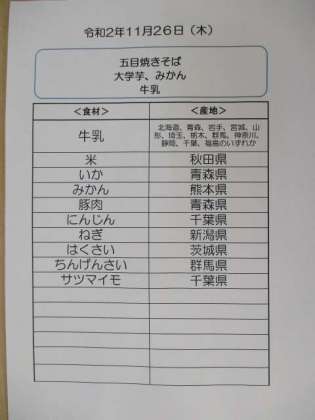 令和2年11月26日（木）
五目焼きそば
大学芋、みかん
牛乳
＜食材＞ ＜産地＞
牛乳 北海道、青森、岩手、宮城、山
形、埼玉、栃木、群馬、神奈川、
静岡、千葉、福島のいずれか
米 秋田県
いか 青森県
みかん 熊本県
豚肉 青森県
にんじん 千葉県
ねぎ 新潟県
はくさい 茨城県
ちんげんさい 群馬県
サツマイモ 千葉県